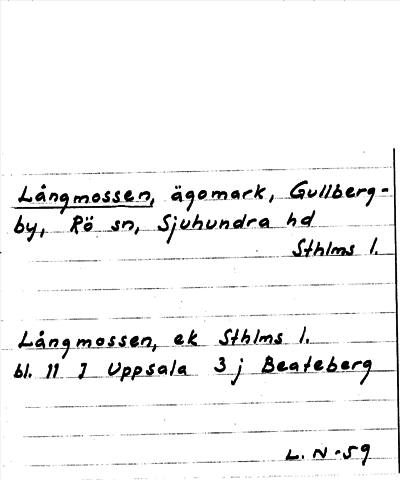 Långmossen, ägomark, Gullberg-
by, Rö sn, Sjuhundra hd
Sthlms l.
Långmossen, ek Sthlms l.
bl. 11 I Uppsala 3 j Beateberg
L. N-59